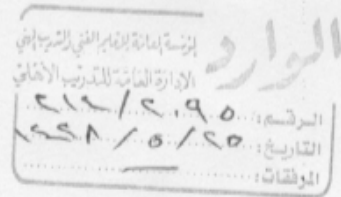 الوارد
المؤسسة العامة للتعليم الفني والتدريب المهني
الإدارة العامة للتدريب الأهلي
الرقم: ٢١٢/٢٠٩٥
التاريخ: ٢٥ / ٥ / ١٤٢٨
المرفقات: